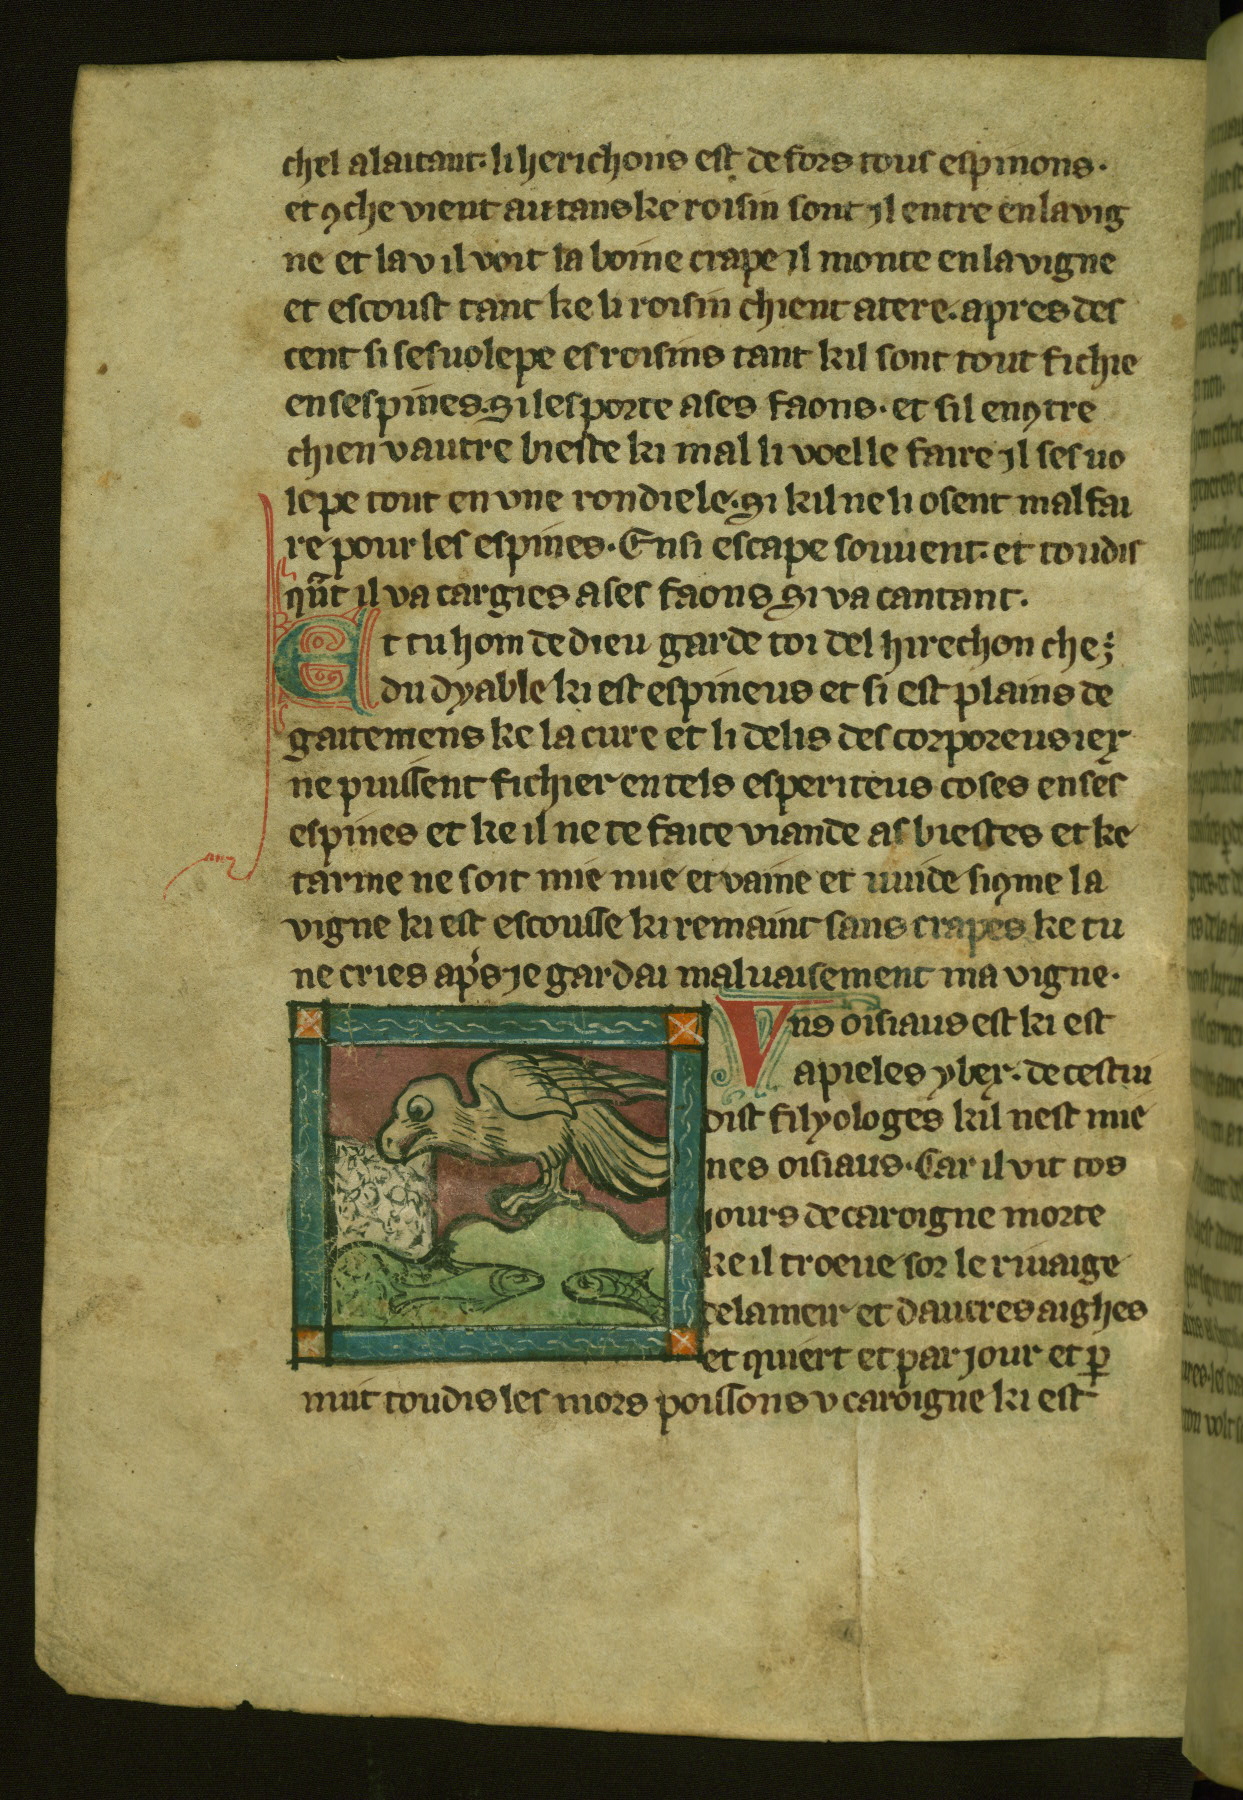 chel alaitant. li herichons est de fors tous espinons.
et ꝯche vient au tans ke roisin sont jl entre en la vig
ne et la v il voit la boine crape jl monte en la vigne
et escoust tant ke li roisin chient a tere. apres des
cent si se suolepe es roisins tant kil sont tout fichie
en ses pines. Si les porte a ses faons. et sil enꝯtre
chien v autre bieste ki mal li voelle faire jl se suo
lepe tout en vne rondiele. Si kil ne li osent mal fai
re pour les espines. Ensi escape souuent. et toudis
qu̅t il va cargies a ses faons Si va cantant.
Et tu hom de dieu garde toi del hirechon chez
du dyable ki est espineus et si est plains de
gaitemens ke la cure et li delis des corporeus iex
ne puissent fichier en tels esperiteus coses en ses
espines et ke il ne te faite viande as biestes et ke
tarme ne soit mie nue et vaine et uuide siꝯme la
vigne ki est escousse ki remaint sans crapes ke tu
ne cries ap's je gardai maluaisement ma vigne.
Vns oisiaus est ki est
apieles ybex. de cestui
dist filyologes kil nest mie
nes oisiaus. Car il vit tos
jours de caroigne morte
ke il troeue sor le riuaige
de la meir et dautres aighes
et quiert et par jour et ꝑ
nuit toudis les mors poissons v caroigne ki est